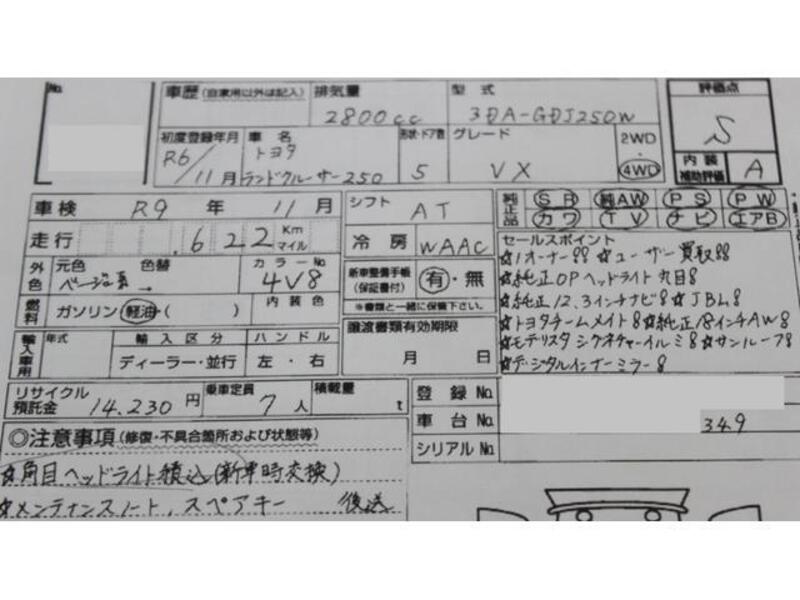 No.
車歴(自家用以外は記入) 排気量 2800cc 型式 3DA-GDJ250W 評価点 S
初度登録年月 R6/11月 車名 トヨタ ランドクルーザー250 形状・ドア数 5 グレード VX 2WD 4WD 内装補助評価 A
車検 R9年11月 シフト AT 純正品 SR 純AW PS PW
カワ TV ナビ エアB
走行 .622 Km マイル 冷房 WAAC
セールスポイント
外色 元色 ベージュ系 色替 → カラーNo. 4V8 新車整備手帳(保証書付) 有・無
☆1オーナー!! ☆ユーザー買取!!
☆純正OPヘッドライト丸目!
燃料 ガソリン・軽油・( ) 内装色 ※書類と一緒に保管下さい。
☆純正12.3インチナビ!☆JBL!
☆トヨタチームメイト!☆純正18インチAW!
輸入車用 年式 輸入区分 ディーラー・並行 ハンドル 左・右 譲渡書類有効期限 月 日
☆モデリスタシグネチャーイルミ!☆サンルーフ!
☆デジタルインナーミラー!
リサイクル預託金 14.230円 乗車定員 7人 積載量 t 登録No.
車台No. 349
◎注意事項(修復・不具合箇所および状態等)
シリアルNo.
☆角目ヘッドライト積込(新車時交換)
☆メンテナンスノート、スペアキー 後送